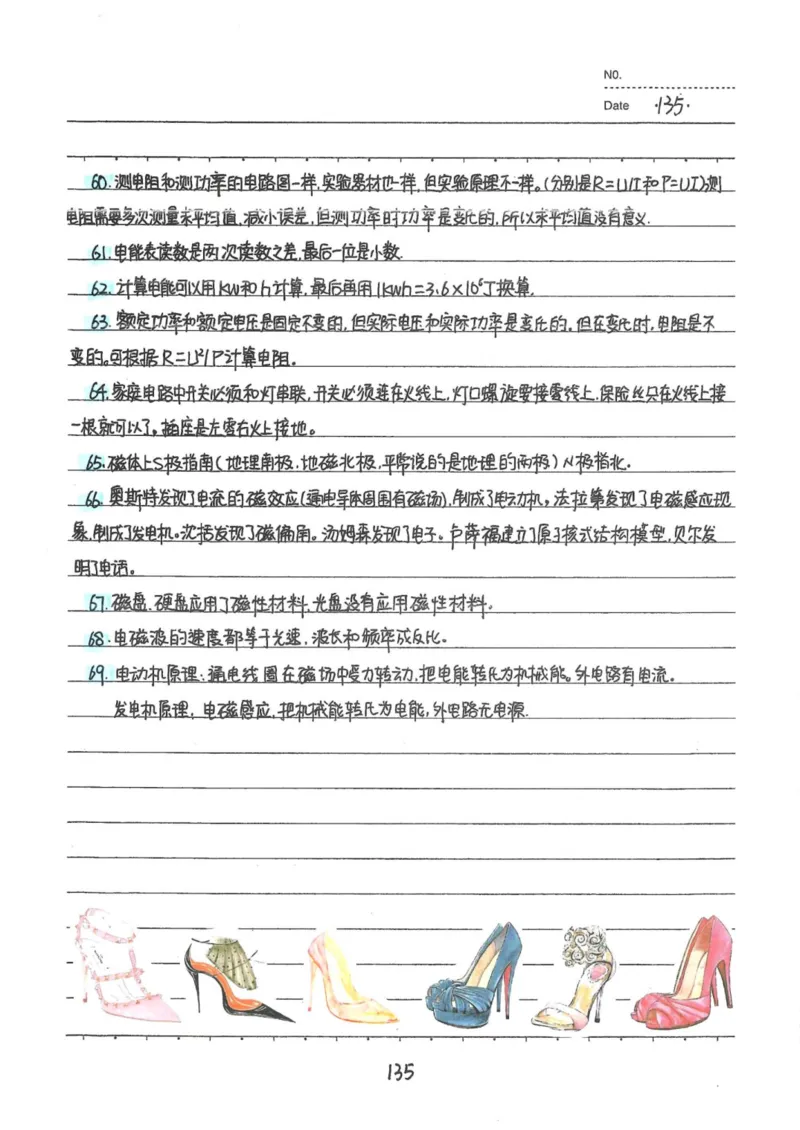 NO.
Date ·135·
60.测电阻和测功率的电路图一样,实验器材也一样,但实验原理不一样。(分别是R=U/I和P=UI)测
电阻需要多次测量求平均值,减小误差,但测功率时功率是变化的,所以求平均值没有意义.
61.电能表读数是两次读数之差,最后一位是小数.
62.计算电能可以用kw和h计算,最后再用1kwh=3.6×10⁶J换算.
63.额定功率和额定电压是固定不变的,但实际电压和实际功率是变化的.但在变化时,电阻是不
变的。可根据R=U²/P计算电阻.
64.家庭电路中开关必须和灯串联,开关必须连在火线上,灯口螺旋要接零线上.保险丝只在火线上接
一根就可以了。插座是左零右火上接地。
65.磁体上S极指南(地理南极.地磁北极,平常说的是地理的两极)N极指北.
66.奥斯特发现了电流的磁效应(通电导体周围有磁场),制成了电动机。法拉第发现了电磁感应现
象,制成了发电机。沈括发现了磁偏角。汤姆森发现了电子。卢萨福建立了原子核式结构模型,贝尔发
明了电话。
67.磁盘.硬盘应用了磁性材料,光盘没有应用磁性材料.
68.电磁波的速度都等于光速,波长和频率成反比.
69.电动机原理:通电线圈在磁场中受力转动,把电能转化为机械能。外电路有电流.
发电机原理:电磁感应,把机械能转化为电能,外电路无电源.
135